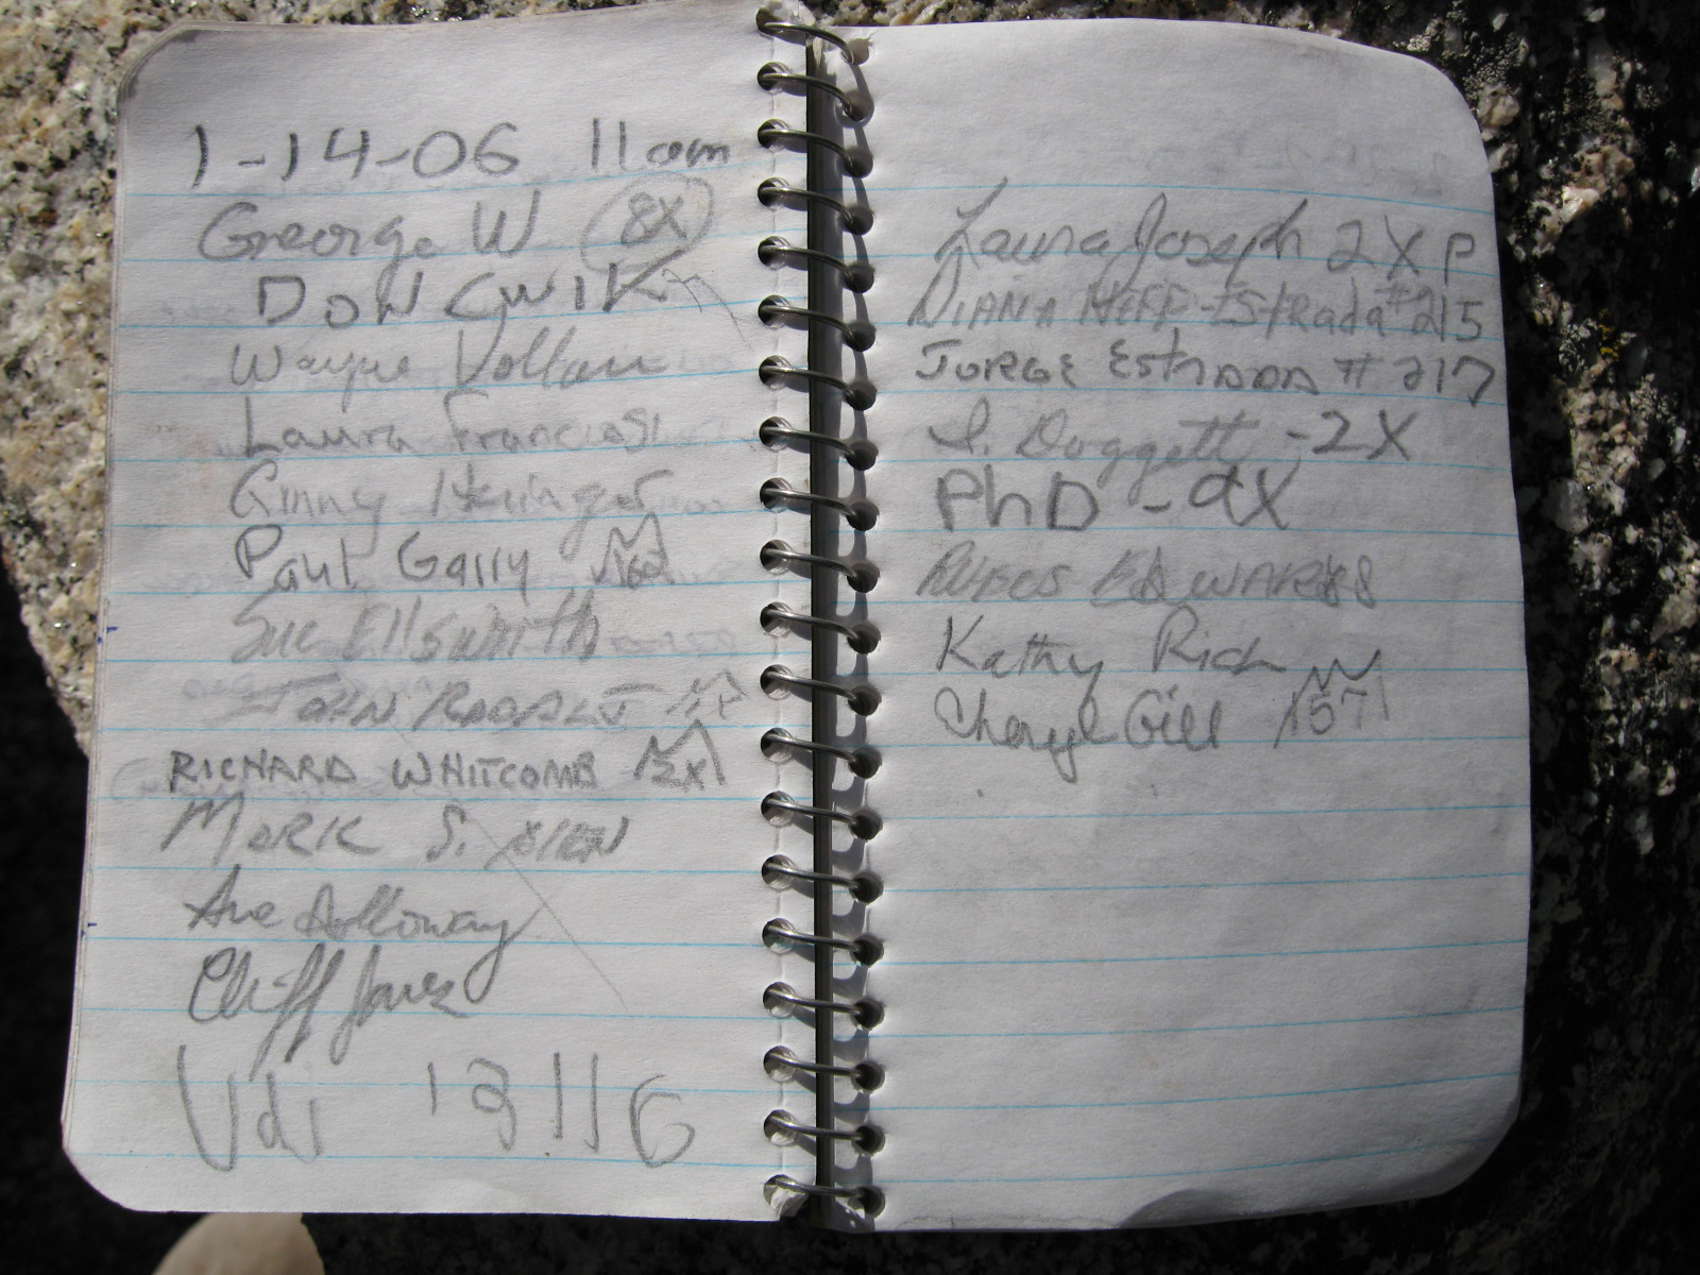 1-14-06 11am
George W 8X
DON CWIK
Wayne Vollan
Laura Franciosi
Ginny Heringer
Paul Garry
Sue Ellsworth
JOHN
RICHARD WHITCOMB 2X
MARK S.
Sue Holloway
Cliff Jones
Udi
Laura Joseph 2X P
DIANA NEFF-EStRada #215
JORGE EStRADA # 217
S. Doggett -2X
PhD - 9X
RUFUS EDWARDS
Kathy Rich
Cheryl Gill 157